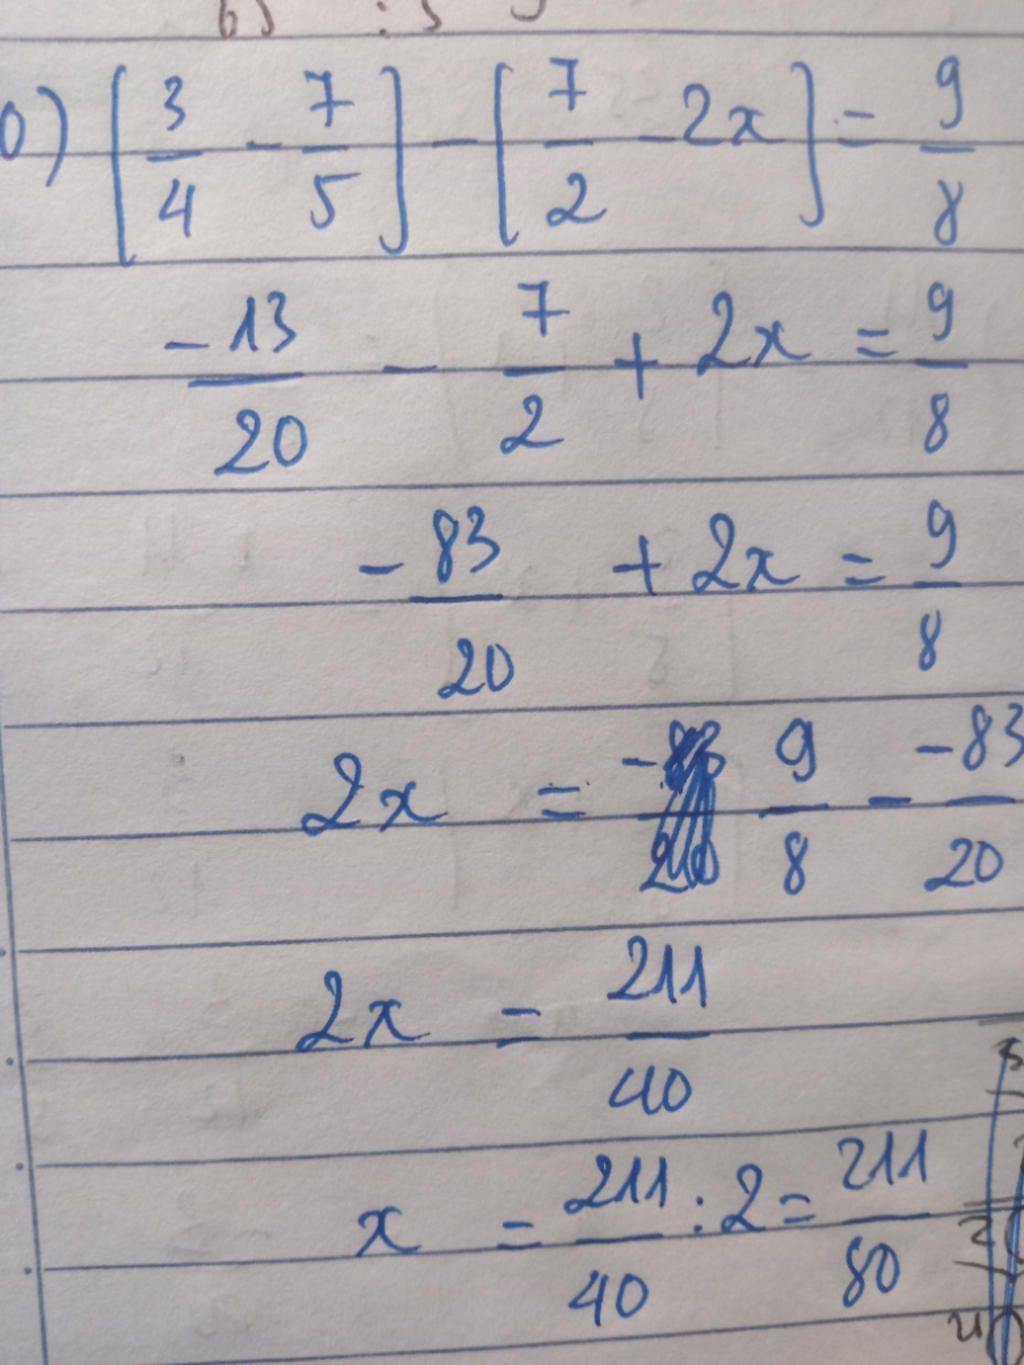 [3/4 - 7/5] - [7/2 - 2x] = 9/8
-13/20 - 7/2 + 2x = 9/8
-83/20 + 2x = 9/8
2x = 9/8 - -83/20
2x = 211/40
x = 211/40 : 2 = 211/80